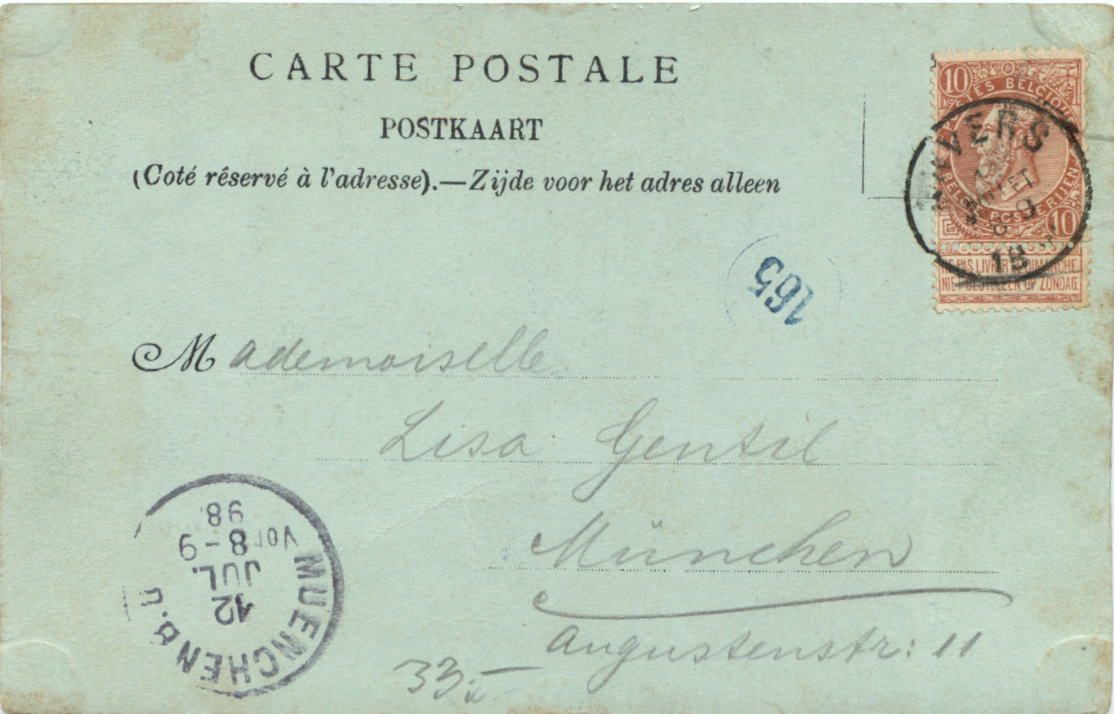 CARTE POSTALE
POSTKAART
(Coté réservé à l'adresse).—Zijde voor het adres alleen
10
POSTES BELGIQUE
BELG POSTERIJEN
10
NE PAS LIVRER DIMANCHE
NIET BESTELLEN OP ZONDAG
ANVERS
18
165
Mademoiselle
Lisa Gentil
München
Augustenstr: 11
33.-
MUENCHEN B.B.
12
JUL.
Vor 8-9
98.